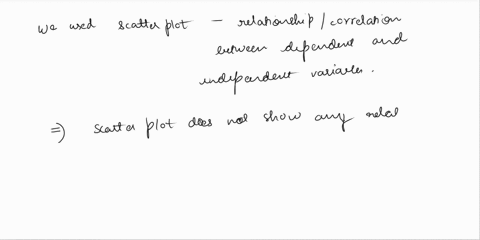 we used scatter plot – relationship / correlation
between dependent and
independent variables.
⇒) scatter plot does not show any relat